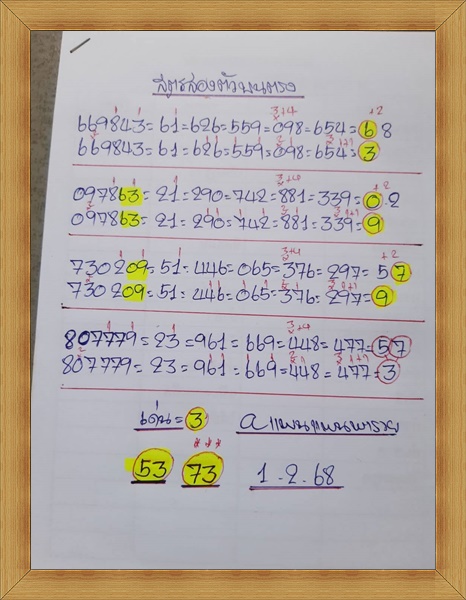 สูตรสองตัวบนตรง
3+4 +2
669843=61=626=559=098=654=68
669843=61=626=559=098=654=3
3+4 +2
097863=21=290=742=881=339=02
097863=21=290=742=881=339=9
3+4 +2
730209=51=446=065=376=297=57
730209=51=446=065=376=297=9
3+4
807779=23=961=669=448=477=57
807779=23=961=669=448=477=3
เด่น=3
53 73 1-2-68